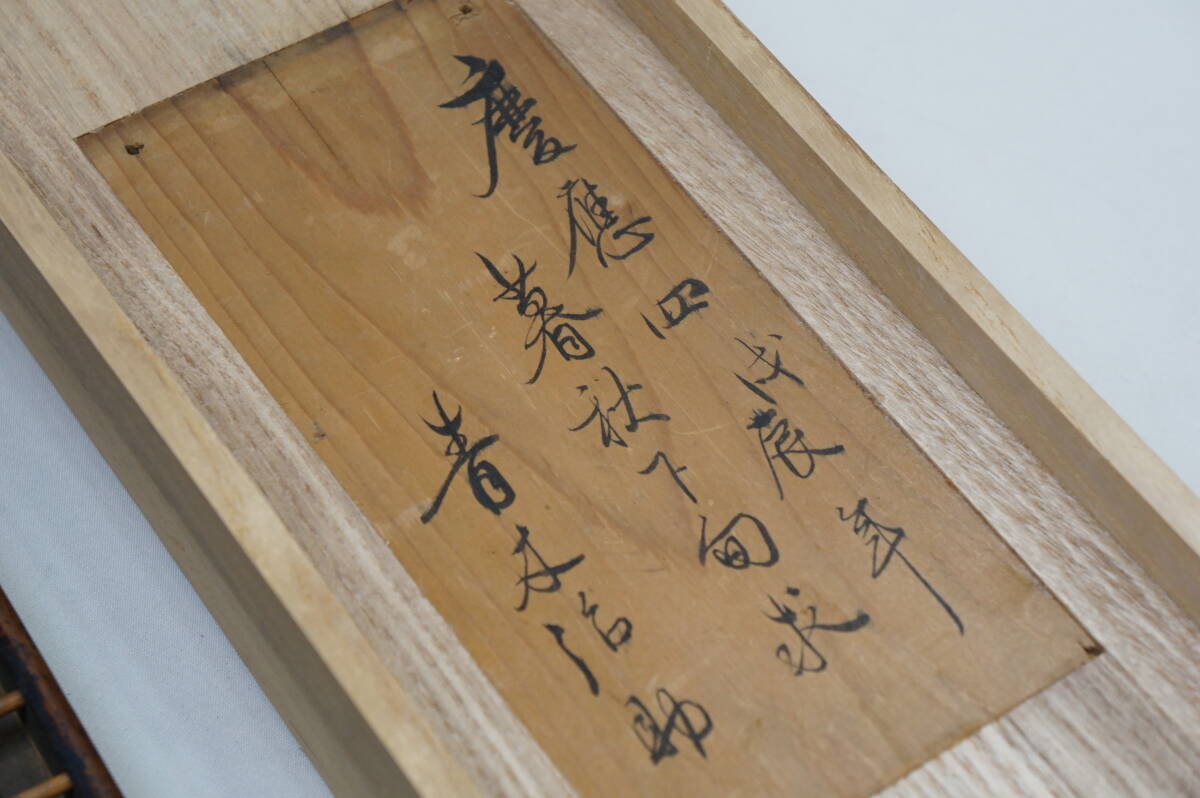 慶應四戊辰年
暮秋下旬求
青木治助